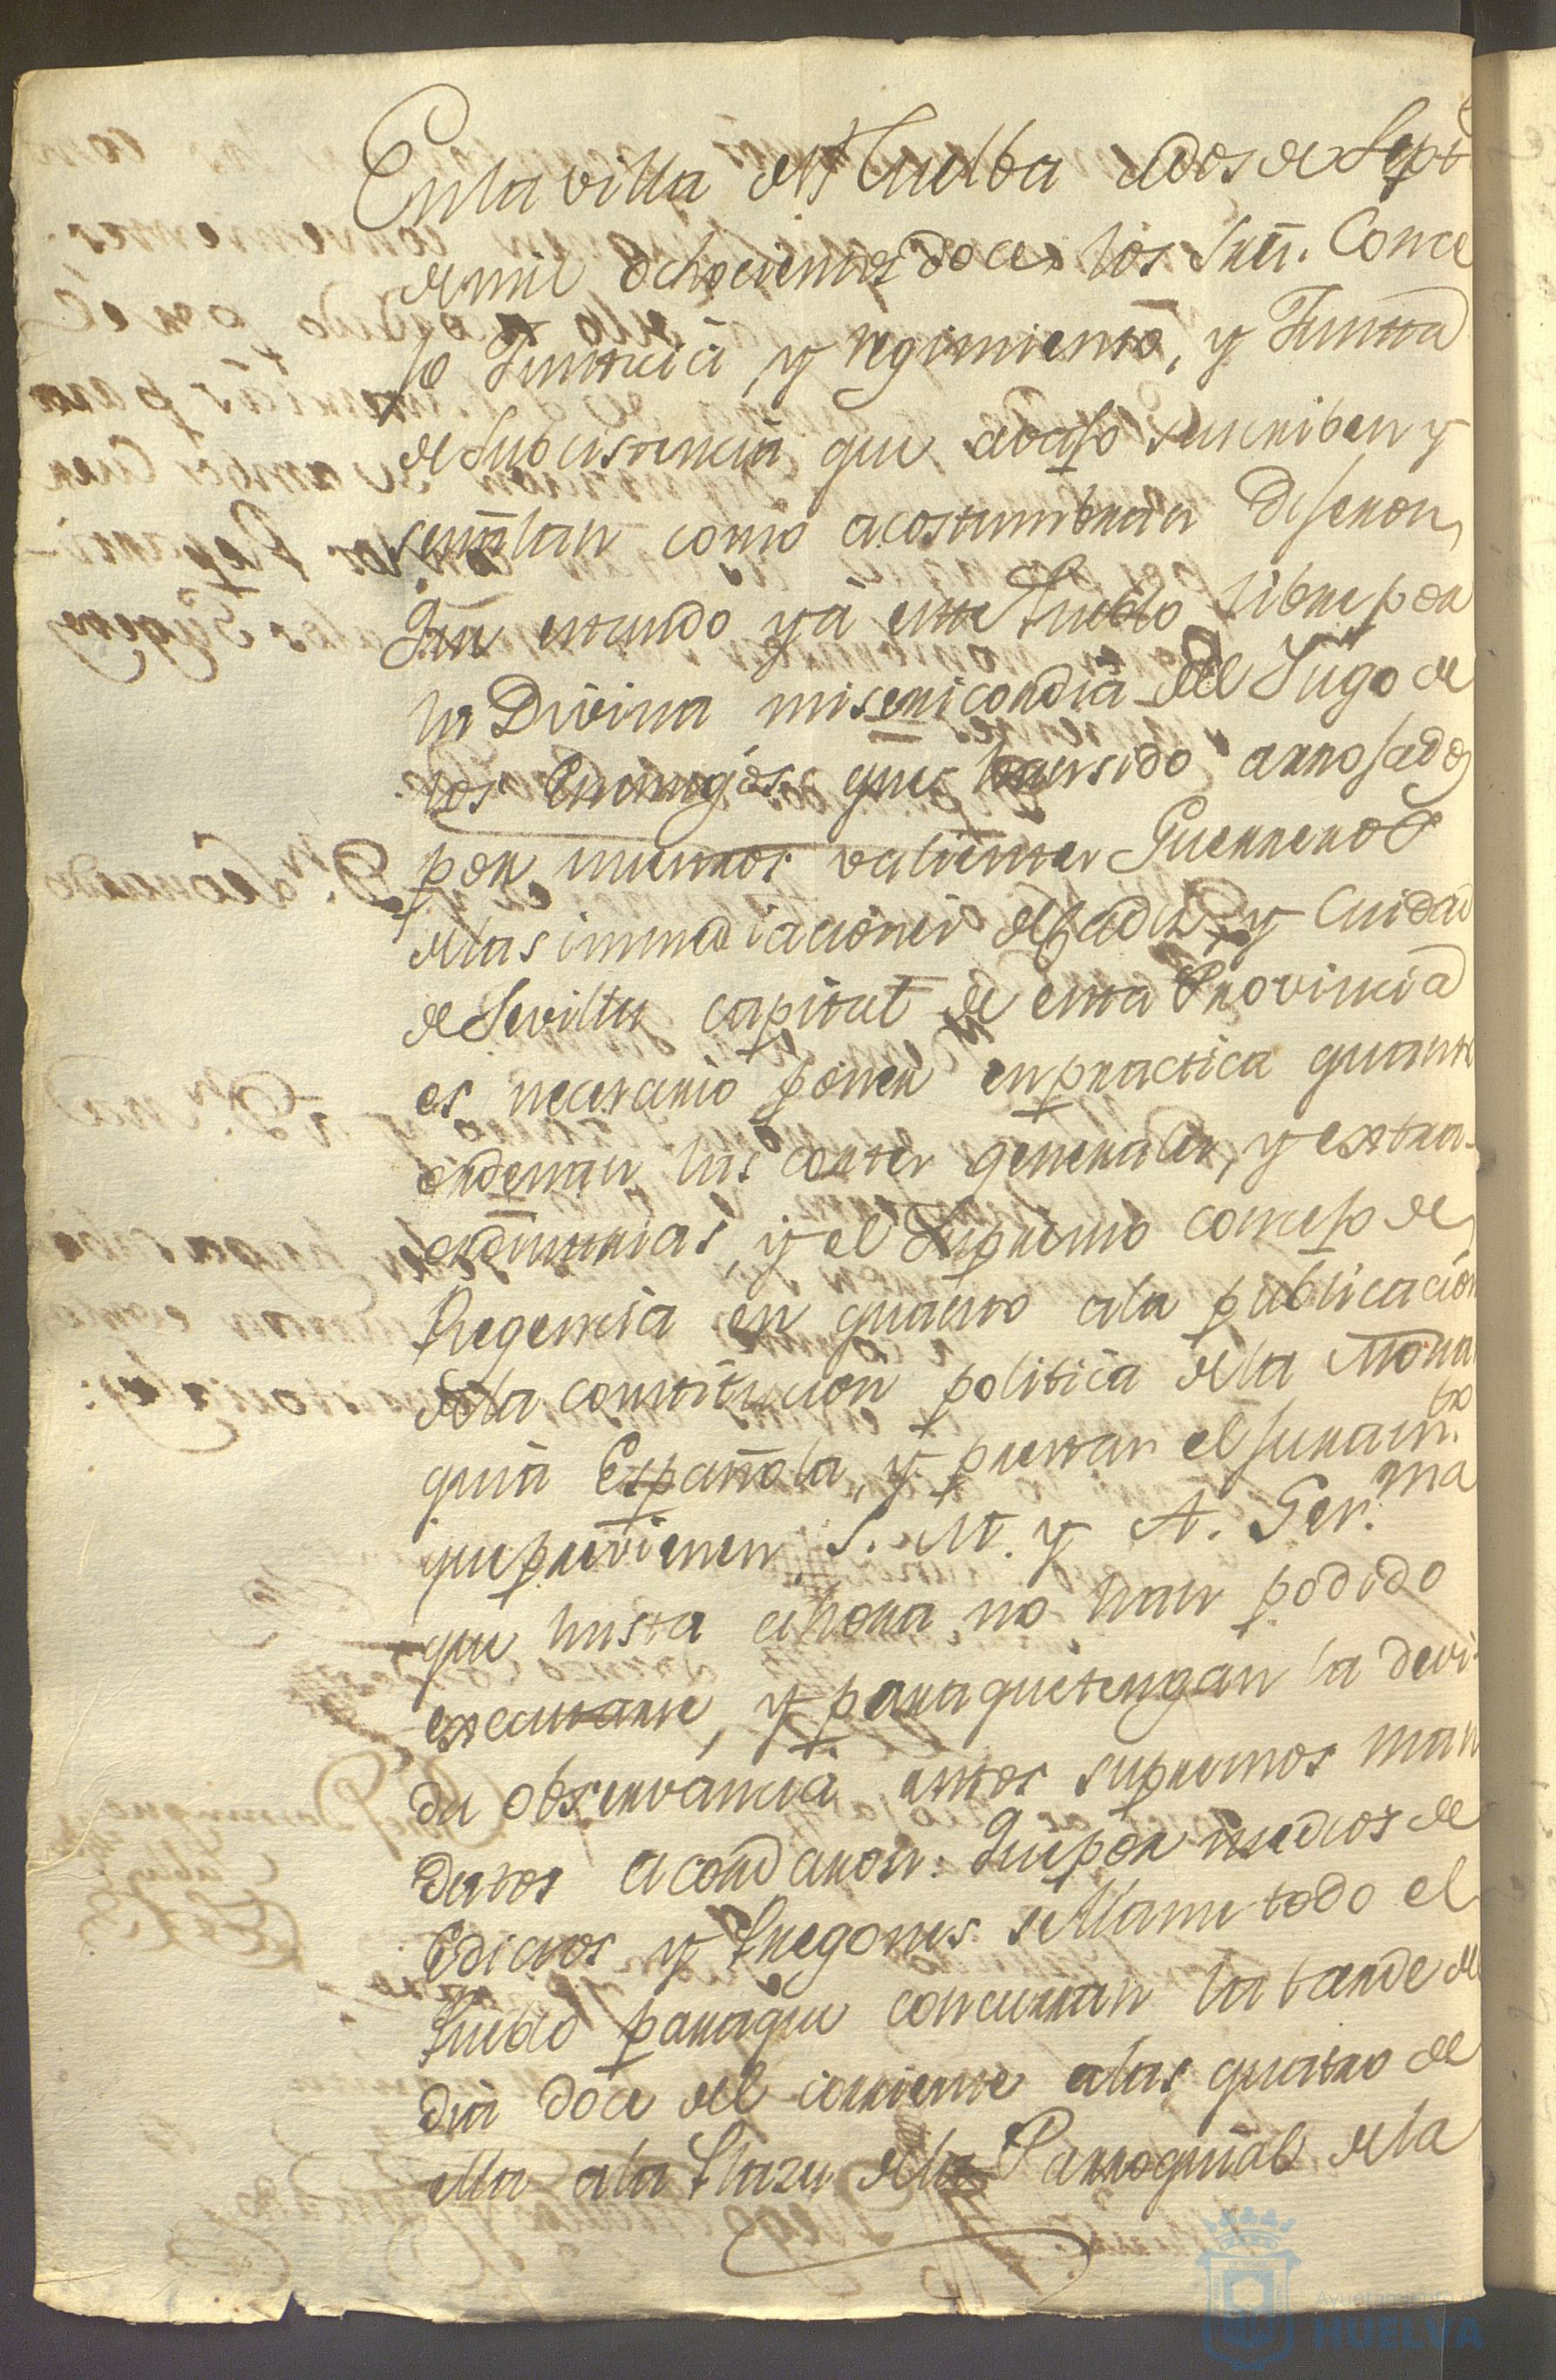 En la villa de Huelba a dos de Sept.e
de mil ochocientos doce los Sres. Conce
jo Justicia y regimiento, y Junta
de Subcistencia que abaxo subscriben y
señalan como acostumbran Dixeron,
Qe. estando ya este Pueblo libre por
la Divina misericordia del Jugo de
los Enemigos que han sido arrojados
por nuestros valientes Guerreros
de las inmediaciones de Cadiz, y Ciudad
de Sevilla capital de esta Provincia
es necesario poner en practica quanto
ordenan las cortes generales, y extra-
ordinarias, y el Supremo consejo de
Regencia en quanto a la publicacion
de la constitucion politica de la Monar
quia Española, y prestar el juram.to
que previenen S. M. y A. Ser.ma
que hasta ahora no han podido
executarse, y para que tengan la devi-
da observancia estos supremos man
datos acordaron: Que por medios de
Edictos y Pregones se llame todo el
Pueblo para que concurran la tarde del
dia doce del corriente a las quatro de
ella a la Plaza de la Parroquial de la
Ayuntamiento de
HUELVA